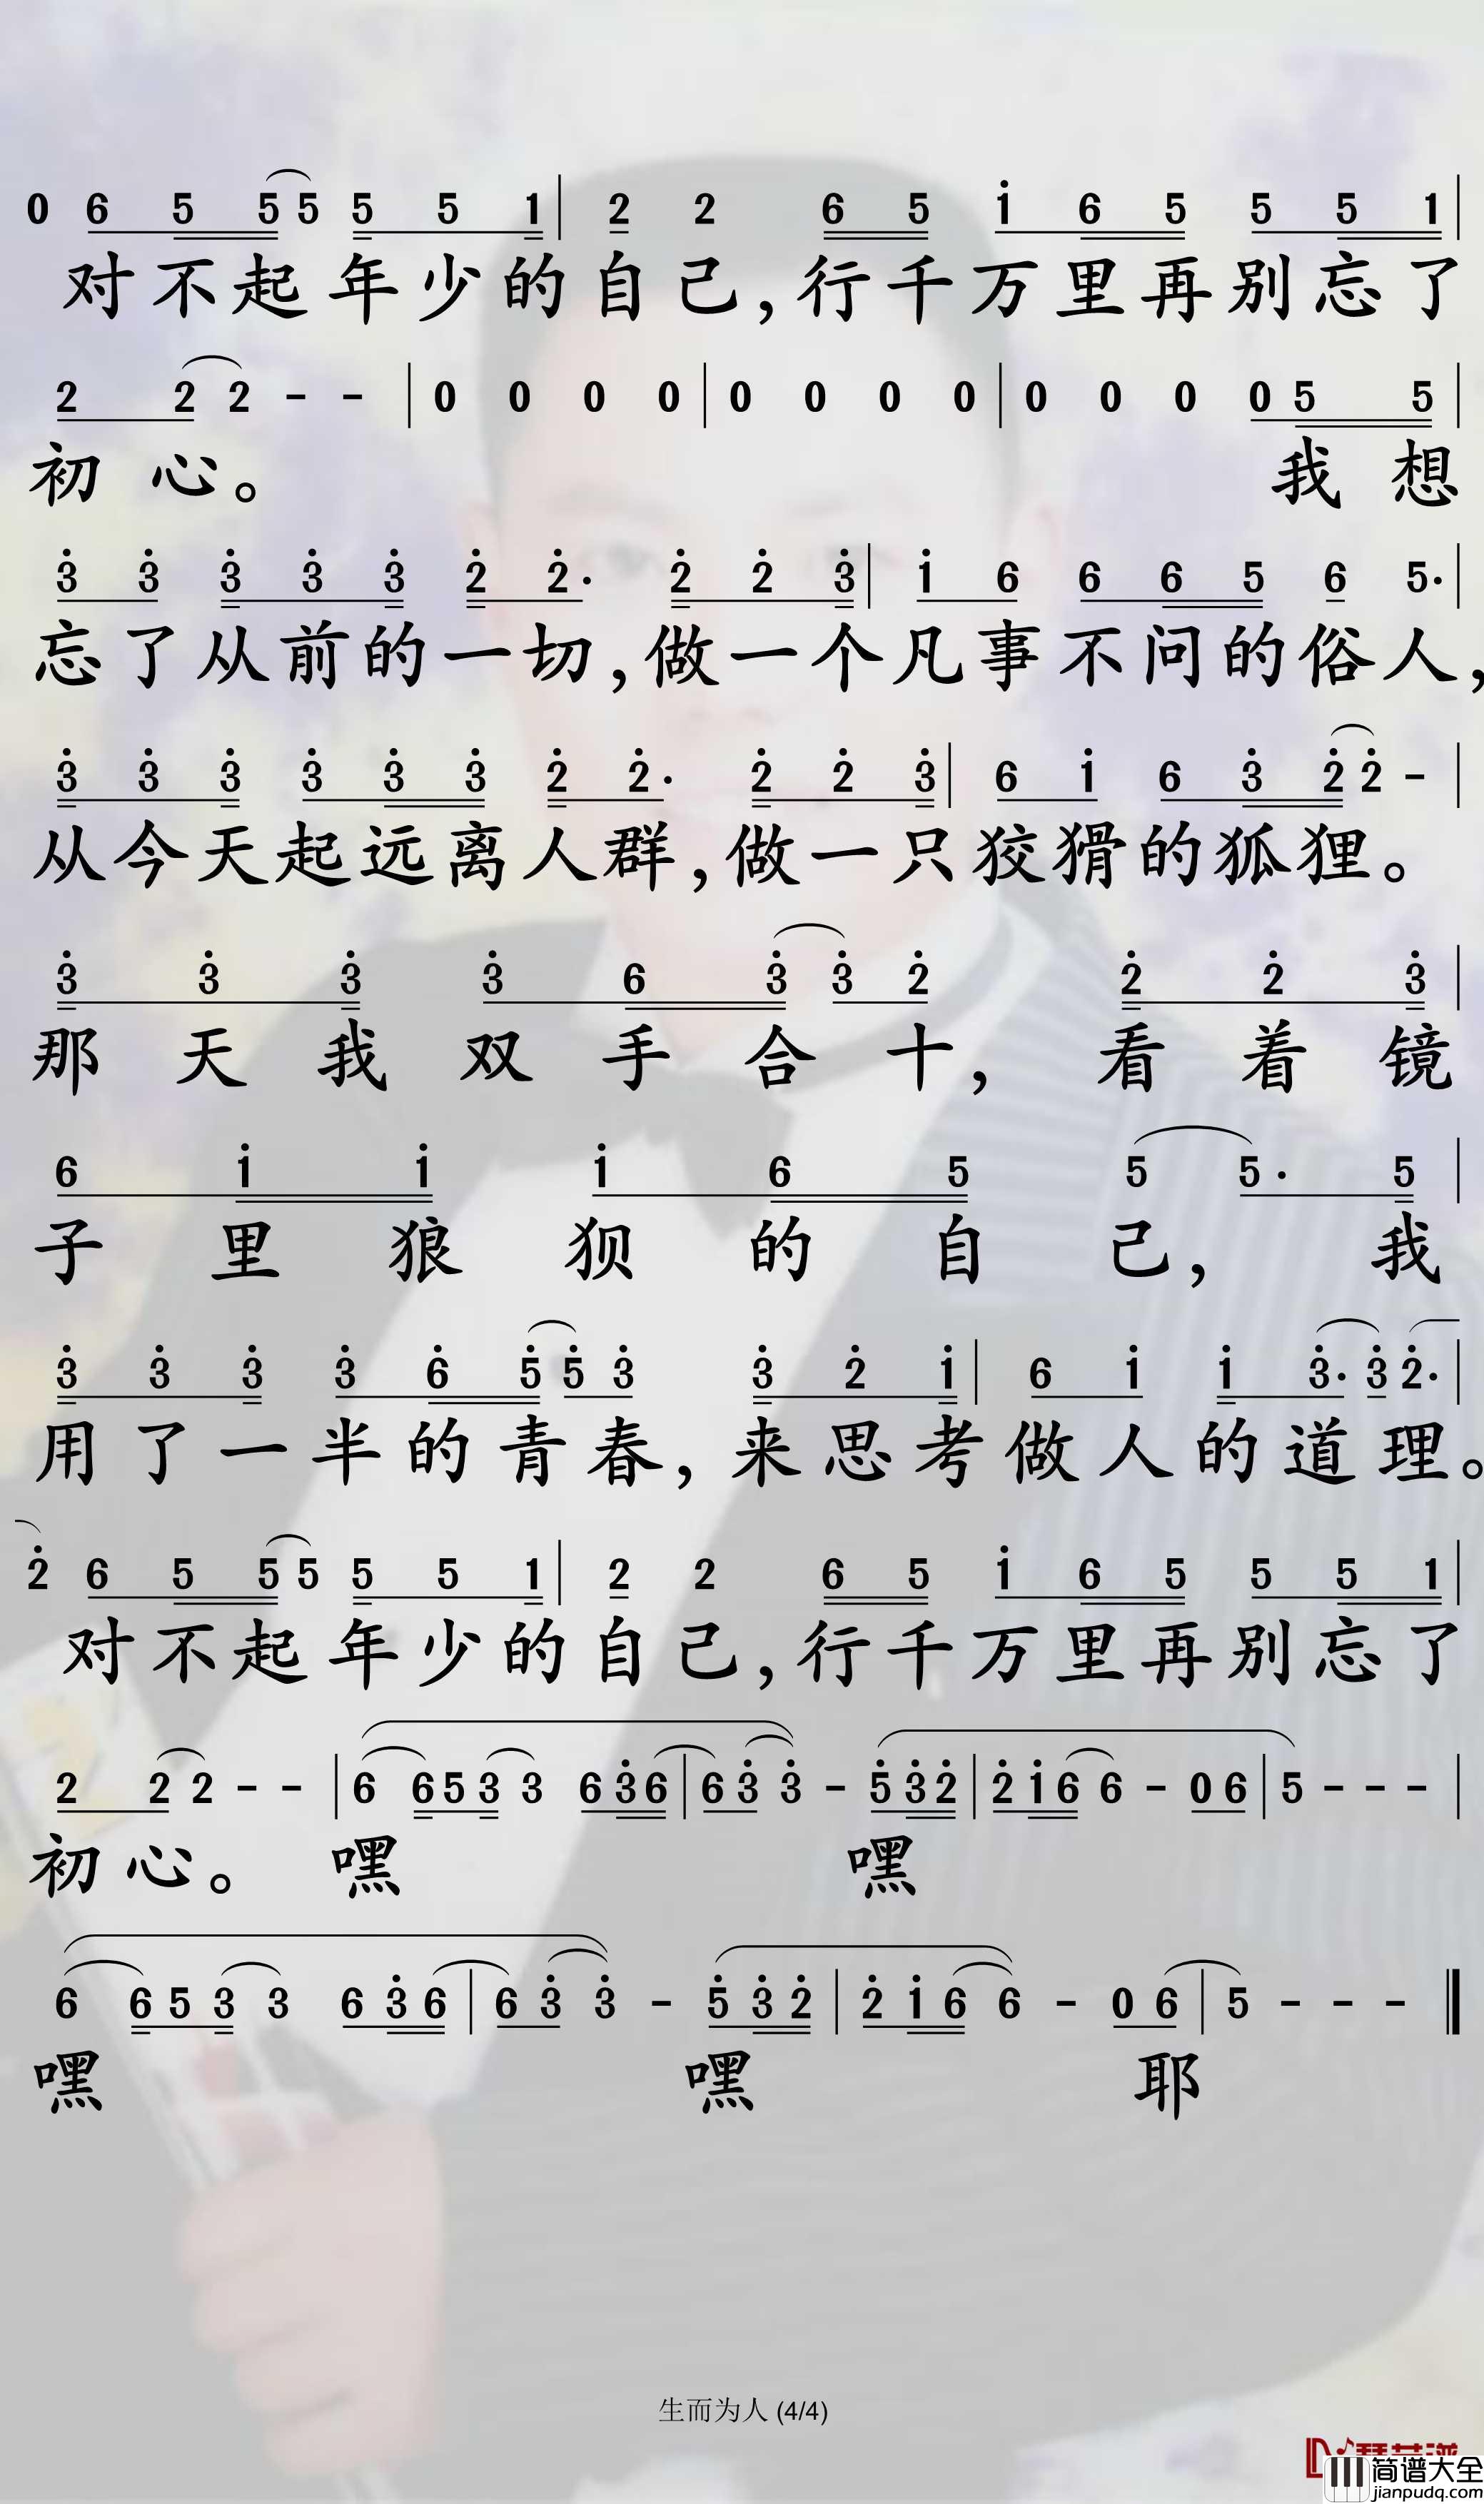 0 6 5 5 5 5 5 1 | 2 2 6 5 i 6 5 5 5 1 |
对不起年少的自己,行千万里再别忘了
2 2 2 - - | 0 0 0 0 | 0 0 0 0 | 0 0 0 0 5 5 |
初心。 我想
3̇ 3̇ 3̇ 3̇ 3̇ 2̇ 2̇· 2̇ 2̇ 3̇ | i 6 6 6 5 6 5· |
忘了从前的一切,做一个凡事不问的俗人,
3̇ 3̇ 3̇ 3̇ 3̇ 3̇ 2̇ 2̇· 2̇ 2̇ 3̇ | 6 i 6 3̇ 2̇ 2̇ - |
从今天起远离人群,做一只狡猾的狐狸。
3̇ 3̇ 3̇ 3̇ 6 3̇ 3̇ 2̇ 2̇ 2̇ 3̇ |
那天我双手合十,看着镜
6 i i i 6 5 5 5· 5 |
子里狼狈的自己,我
3̇ 3̇ 3̇ 3̇ 6̇ 5̇ 5̇ 3̇ 3̇ 2̇ i | 6 i i 3̇· 3̇ 2̇· |
用了一半的青春,来思考做人的道理。
2̇ 6 5 5 5 5 5 1 | 2 2 6 5 i 6 5 5 5 1 |
对不起年少的自己,行千万里再别忘了
2 2 2 - - | 6 6 5 3 3 6 3̇ 6 | 6 3̇ 3̇ - 5̇ 3̇ 2̇ | 2̇ i 6 6 - 0 6 | 5 - - - |
初心。 嘿 嘿
6 6 5 3 3 6 3̇ 6 | 6 3̇ 3̇ - 5̇ 3̇ 2̇ | 2̇ i 6 6 - 0 6 | 5 - - - ‖
嘿 嘿 耶
生而为人 (4/4)
简谱大全
jianpudq.com